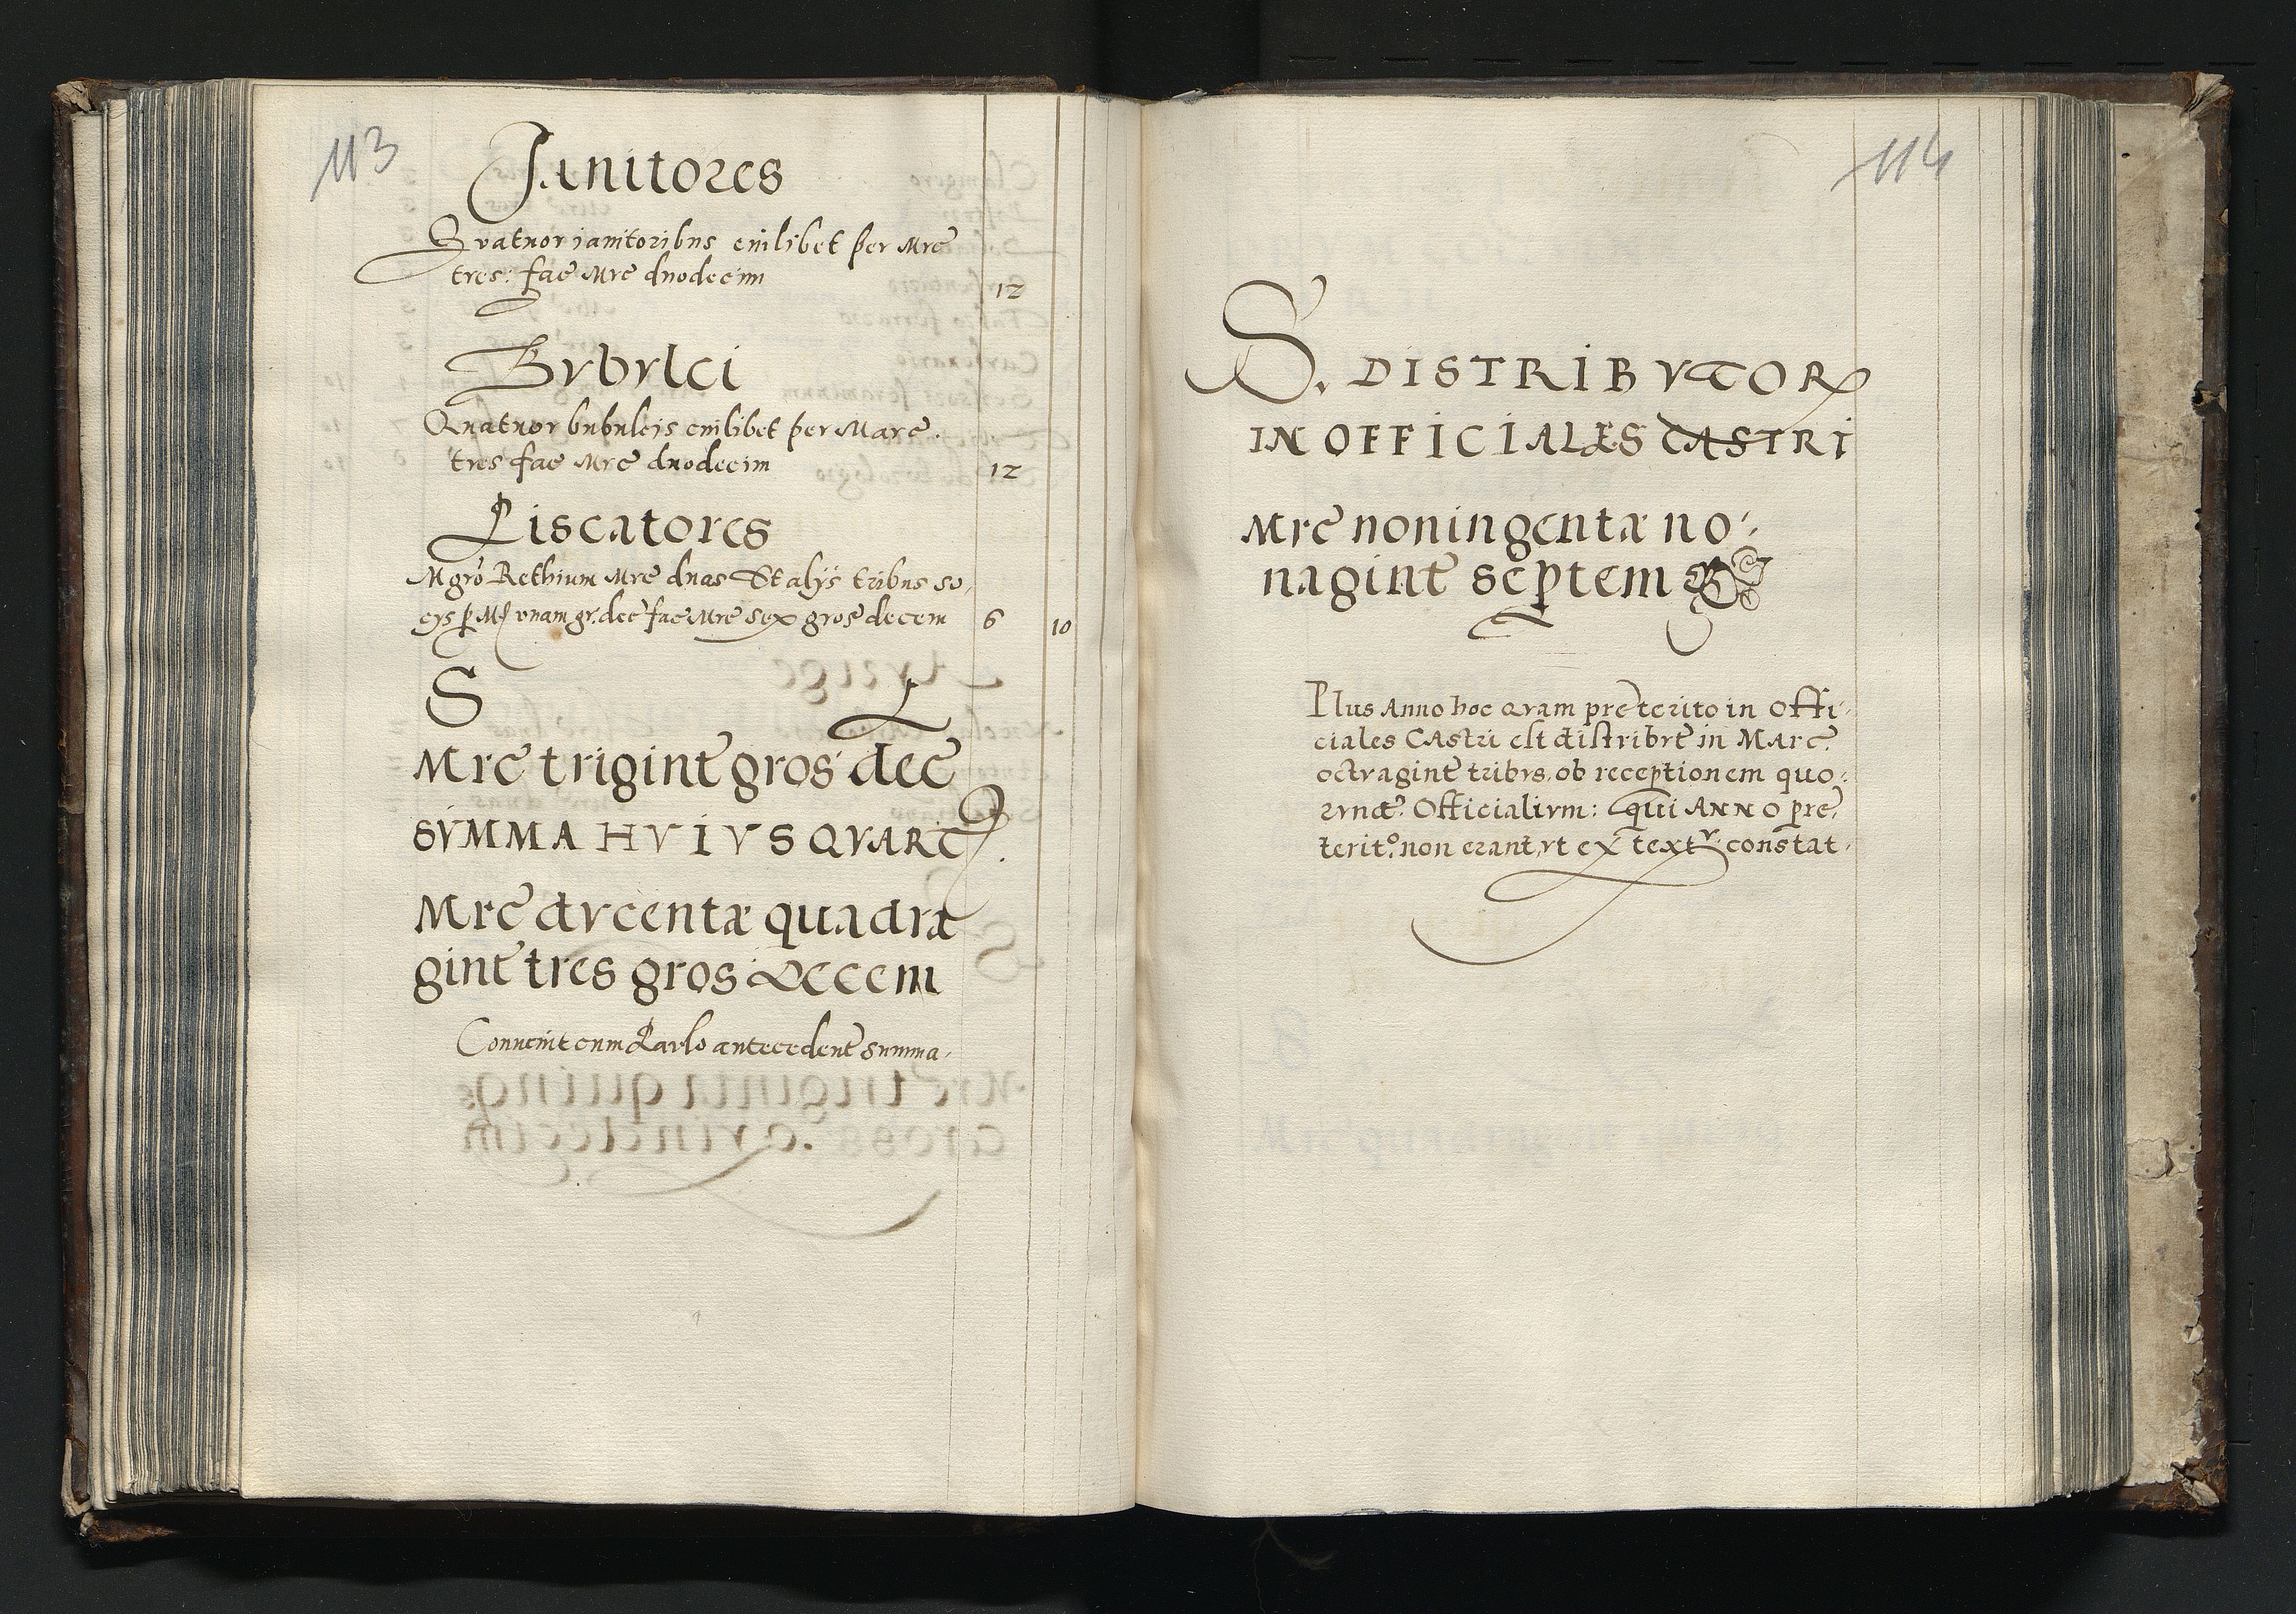 113
Janitores
Qvatuor janitoribus cuilibet per Mrc
tres: fac Mrc duodecim 12
Bvbvlci
Quatuor bubulcis cuilibet per Marc.
tres fac Mrc duodecim 12
Piscatores
Mgro Rethium Mrc duas St alijs tribus so,
cys p Mr vnam gr. dec fac Mrc sex gros decem 6 10
S P
Mrc trigint gros dec
SVMMA HVIVS QVART
Mrc dvcentæ quadra
gint tres gros Decem
Conuenit cum Parlo antecedent summa.
114
S. DISTRIBVTOR
IN OFFICIALES CASTRI
Mrc noningentæ no:
nagint septem
Plus Anno hoc qvam preterito in Offi-
ciales CAstri est distribvt in MArc
octvagint tribvs, ob receptionem quo:
rvnd: Officialivm: qui ANNO pre,
terito non erant, vt ex textv constat.